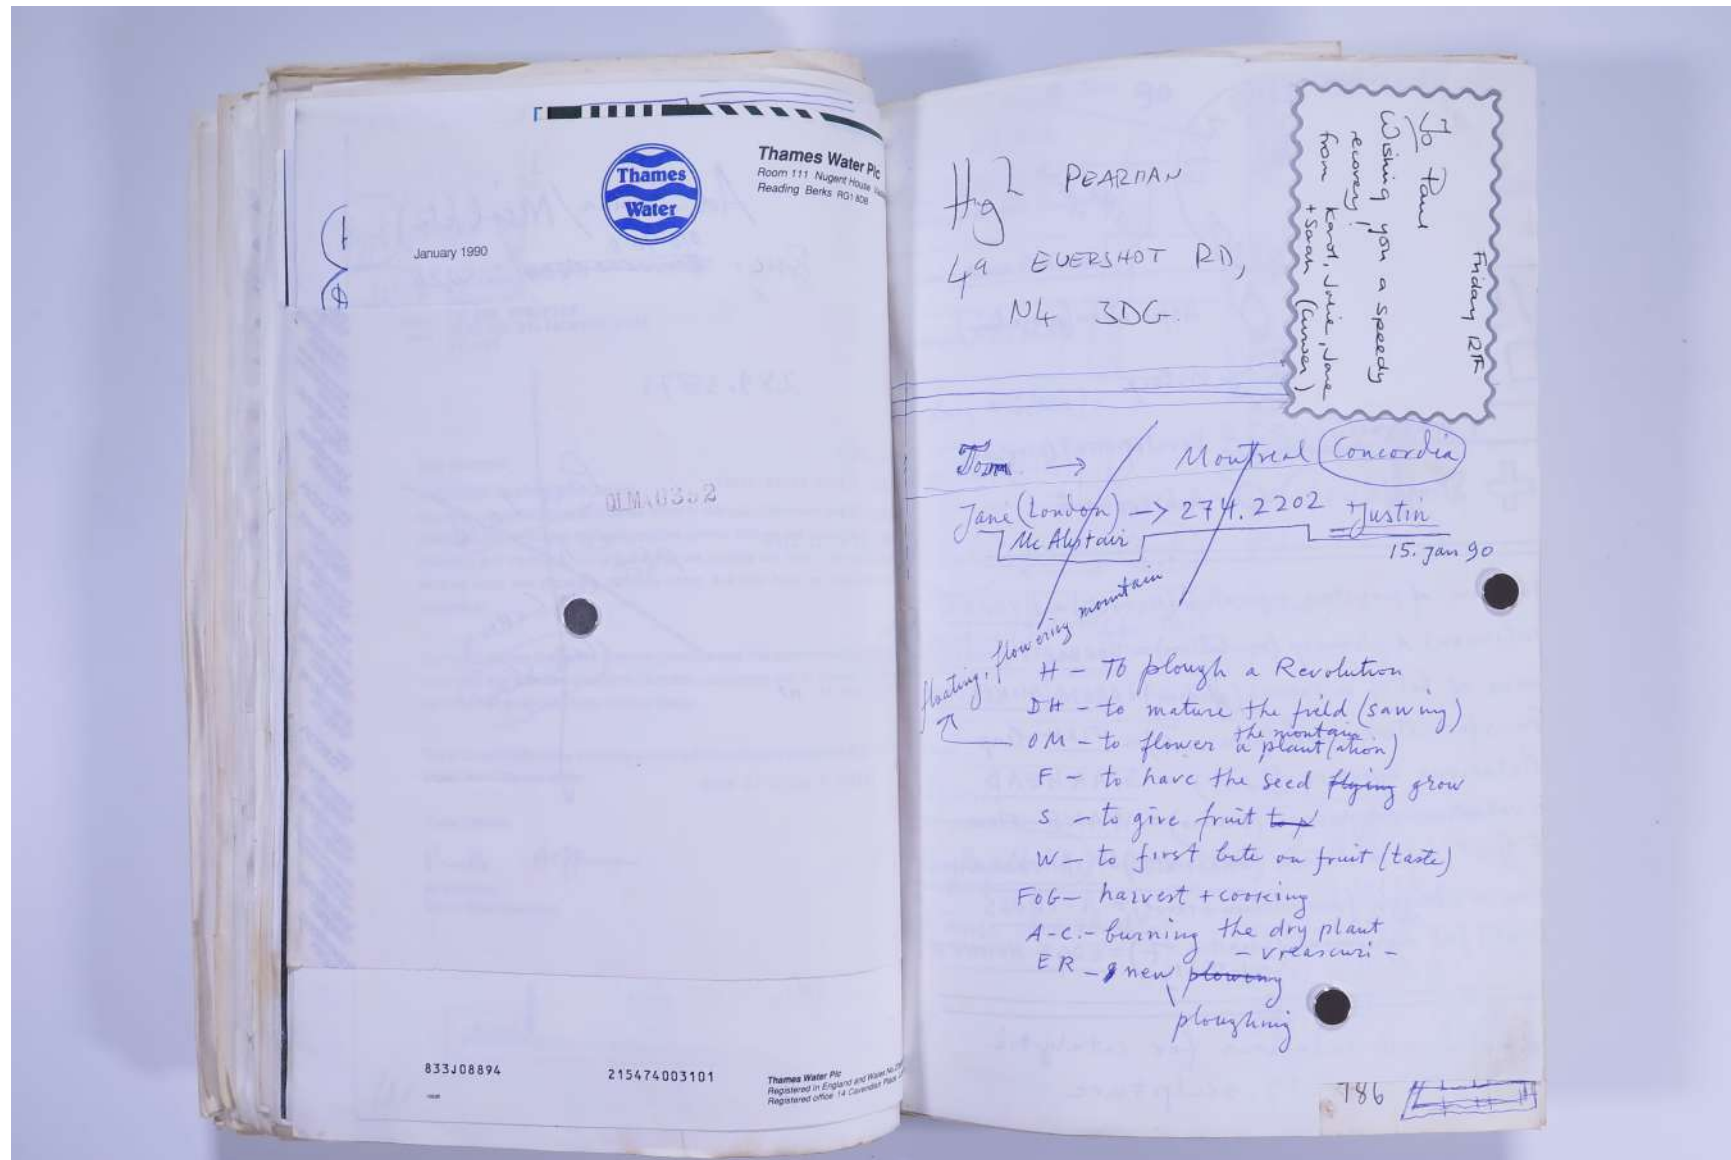 Thames
Water
Thames Water Plc
Room 111 Nugent House
Reading Berks RG1 8DB
January 1990
833J08894
215474003101
Thames Water Plc
Registered in England and Wales
Registered office 14 Cavendish Place
PEARMAN
49 EVERSHOT RD,
N4 3DG.
Friday 12th
To Paul
Wishing you a speedy
recovery!
from Karol, Josie, Jane
+ Sarah
Tom → Montreal (Concordia)
Jane (London) → 274.2202 Justin
Mc Alistair
15. Jan 90
floating, flowering mountain
H - To plough a Revolution
DH - to mature the field (sawing)
the montain
OM - to flower a plant(ation)
F - to have the seed flying grow
S - to give fruit to
W - to first bite on fruit (taste)
FOG - harvest + cooking
A-C. - burning the dry plant
- vreascuri -
ER - new plowing
ploughing
786